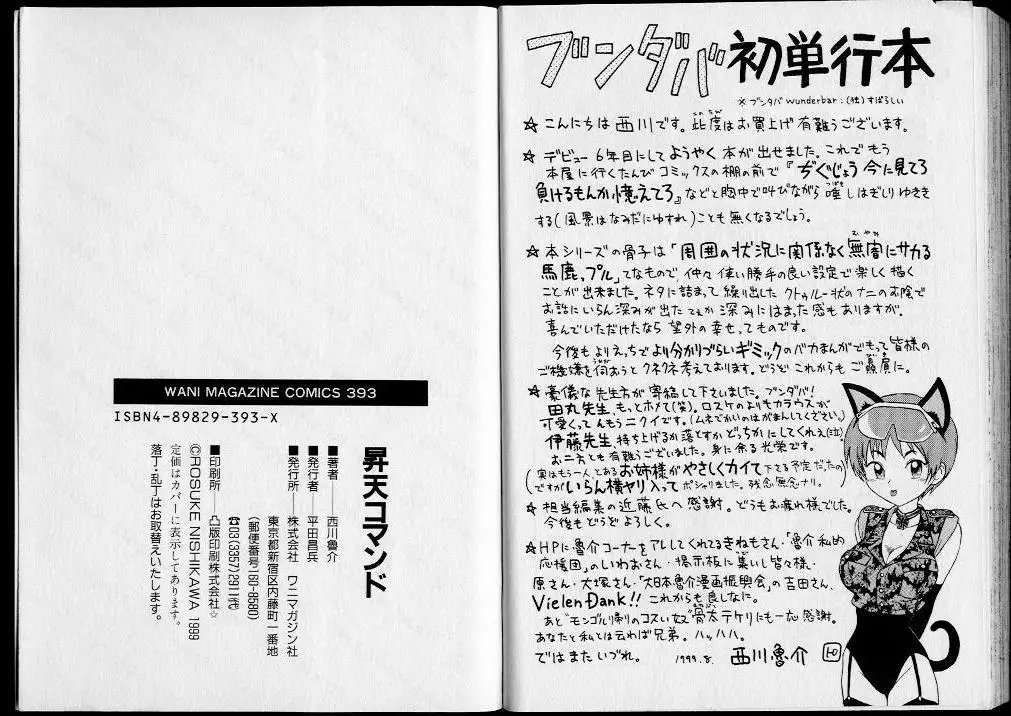 ブンダバ 初単行本
※ブンダバ wunderbar:(独)すばらしい
☆こんにちは西川です。此度はお買上げ有難うございます。
☆デビュー6年目にしてようやく本が出せました。これでもう
本屋に行くたんびコミックスの棚の前で『ぢぐじょう今に見てろ
負けるもんか憶えてろ』などと胸中で叫びながら唾しはぎしりゆきき
する(風景はなみだにゆすれ)ことも無くなるでしょう。
☆本シリーズの骨子は「周囲の状況に関係なく無闇にサカる
馬鹿ップル」てなもので、仲々使い勝手の良い設定で楽しく描く
ことが出来ました。ネタに詰まって繰り出したクトゥルー状のナニのお陰で
お話にいらん深みが出たてぇか深みにはまった感もありますが、
喜んでいただけたなら望外の幸せ、てものです。
今後もよりえっちでより分かりづらいギミックのバカまんがでもって皆様の
ご機嫌を伺おうとクネクネ考えております。どうぞこれからもご贔屓に。
☆豪儀な先生方が寄稿して下さいました。ブンダバ!
田丸先生、もっとホメて(笑)。ロスケのよりもカラウスが
可愛くってんもうニクイです。(ムネでかいのはがまんしてください。)
伊藤先生 持ち上げるか落とすかどっちかにしてくれえ(泣)
お二方とも有難うございました。身に余る光栄です。
(実はもう一人であるお姉様がやさしくカイて下さる予定だったの
ですがいらん横ヤリ入ってポシャりました。残念無念ナリ。)
☆担当編集の近藤氏へ感謝。どうもお疲れ様でした。
今後もどうぞよろしく。
☆HPに魯介コーナーをアレしてくれてるきねもさん・「魯介私的
応援団」のいわおさん・掲示板に集いし皆々様・
原さん・大塚さん・「大日本魯介漫画振興会」の吉田さん、
Vielen Dank!! これからも良しなに。
あと"モンゴル帰りのコスい女文"骨太テケリにも一応感謝。
あなたと私とは云わば兄弟。ハッハハ。
ではまたいづれ。 1999.8. 西川魯介
WANI MAGAZINE COMICS 393
ISBN4-89829-393-X
昇天コマンド
■著者────西川魯介
■発行者───平田昌兵
■発行所───株式会社 ワニマガジン社
東京都新宿区内藤町一番地
(郵便番号160-8580)
☎03(3357)2911代
■印刷所───凸版印刷株式会社☆
©ROSUKE NISHIKAWA 1999
定価はカバーに表示してあります。
落丁・乱丁はお取替えいたします。